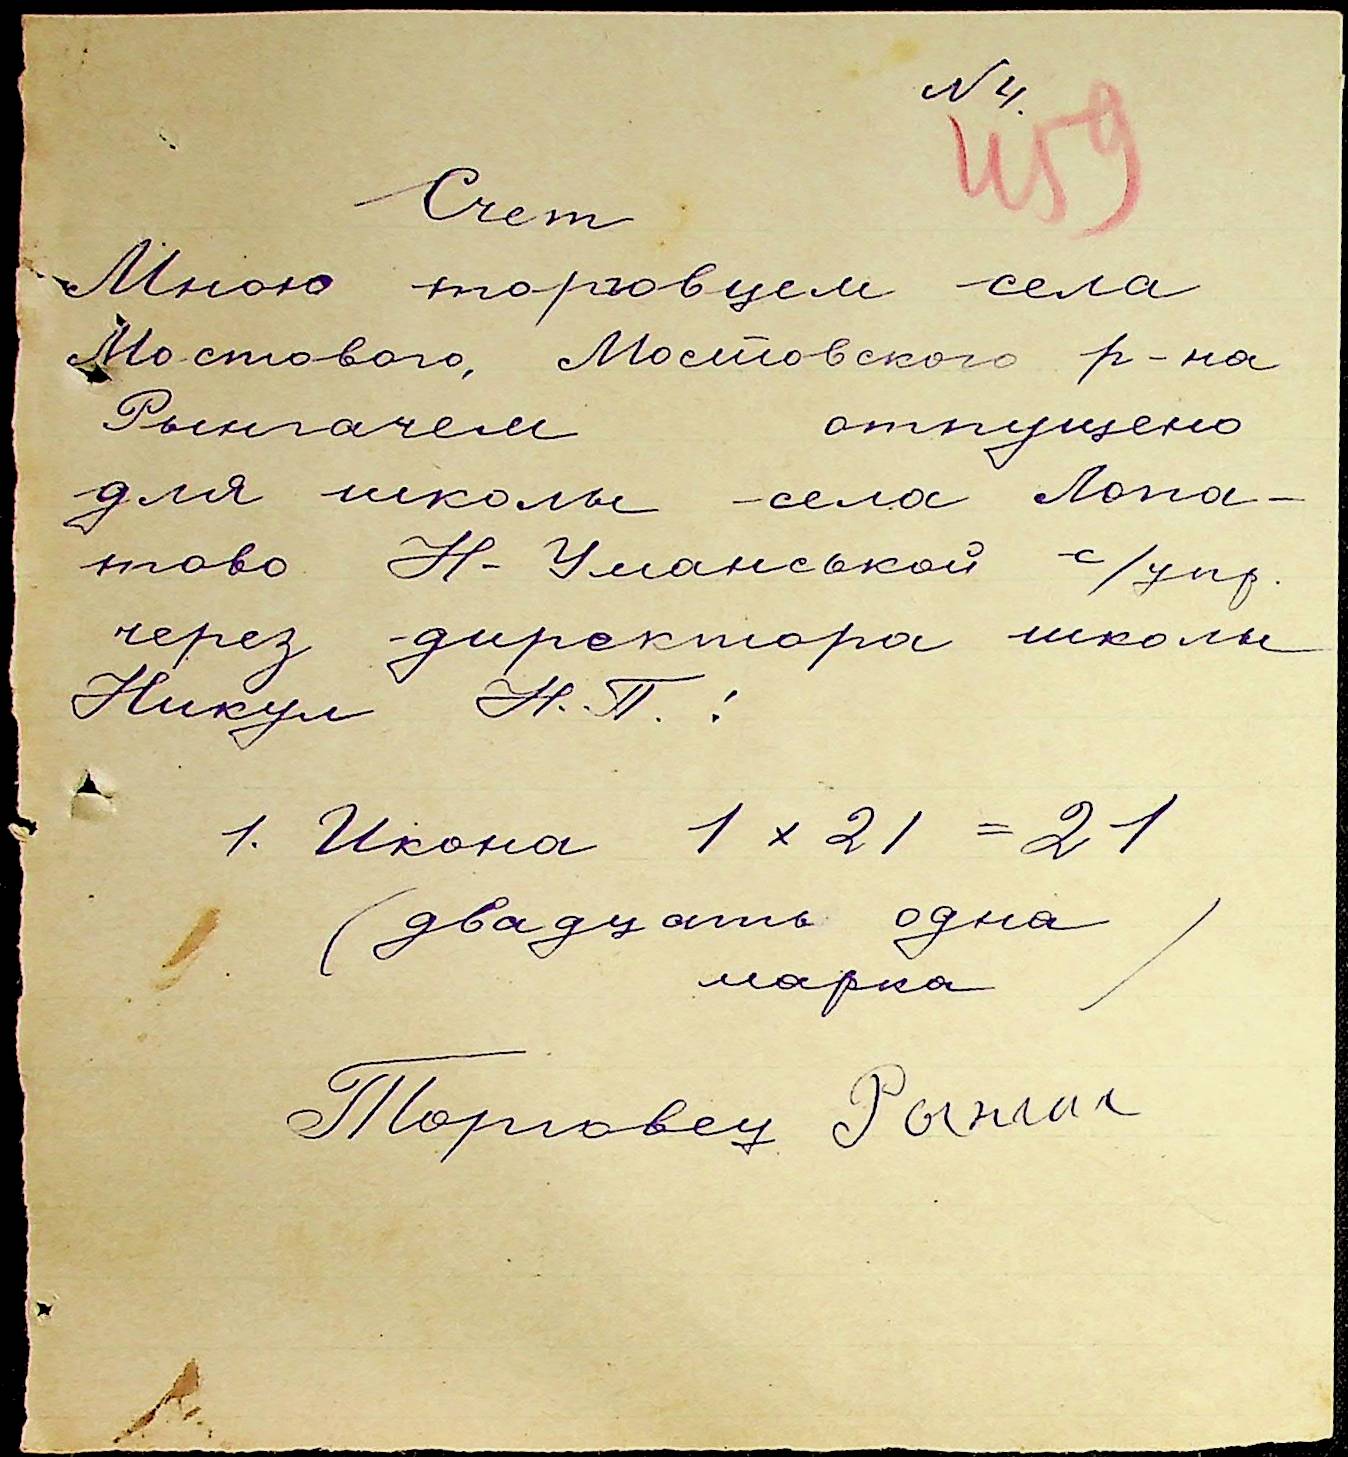 N 4.
459
Счет
Мною торговцем села
Мостового, Мостовского р-на
Рынгачем отпущено
для школы села Лопа-
тово Н-Уманськой с/упр.
через директора школы
Никул Н.П.:
1. Икона 1 x 21 = 21
(двадцать одна
марка)
Торговец Рынгач